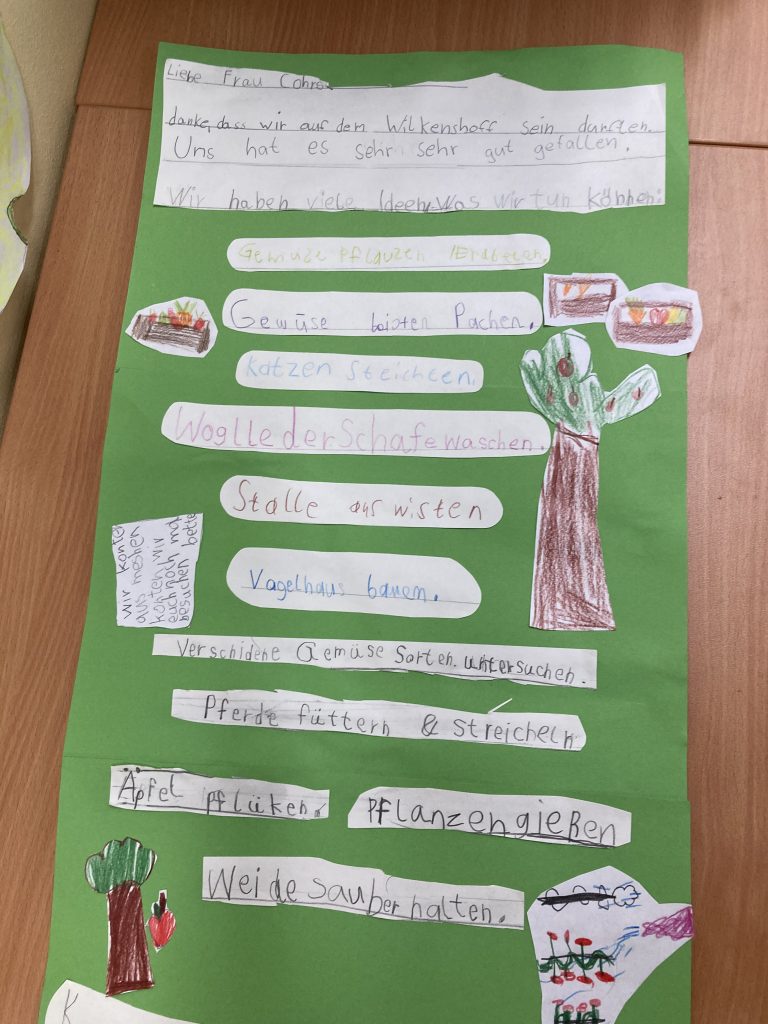 Liebe Frau Cohrs
danke, dass wir auf den Wilkenshoff sein durften.
Uns hat es sehr sehr gut gefallen.
Wir haben viele Ideen, Was wir tun können:
Gemüze Pflanzen /Erdbeeren.
Gewüse beioten Pachen.
Katzen Steichlen.
Woglle der Schafe waschen.
Stalle aus wisten
wir konten
aus meshen
konten wir
euch noch mal
besuchen bette
Vagelhaus bauen.
Verschidene Gemüse Sorten. untersuchen.
Pferde füttern & streicheln
Äpfel pflüken.
Pflanzen gießen
Weide sauber halten.
K